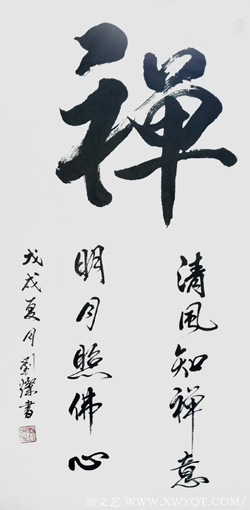 禅
清风知禅意
明月照佛心
戊戌夏月刘灿书
新文艺 WWW.XWYQT.COM/